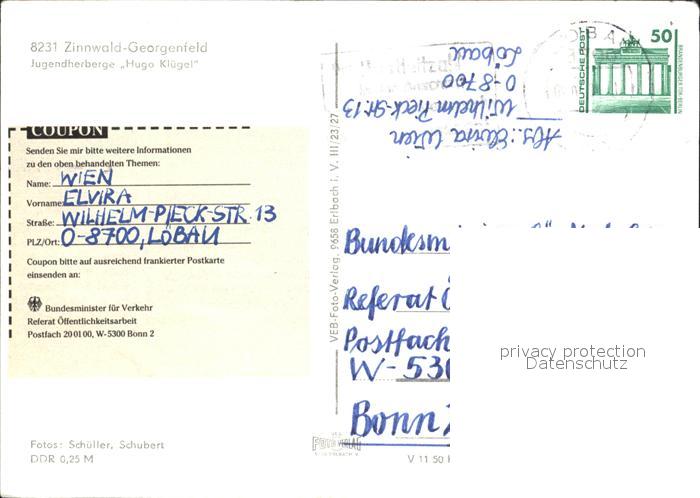 8231 Zinnwald-Georgenfeld
Jugendherberge „Hugo Klügel"
COUPON
Senden Sie mir bitte weitere Informationen
zu den oben behandelten Themen:
Name: WIEN
Vorname: ELVIRA
Straße: WILHELM-PIECK-STR. 13
PLZ/Ort: O-8700, LÖBAU
Coupon bitte auf ausreichend frankierter Postkarte
einsenden an:
Bundesminister für Verkehr
Referat Öffentlichkeitsarbeit
Postfach 20 01 00, W-5300 Bonn 2
Fotos: Schüller, Schubert
DDR 0,25 M
VEB-Foto-Verlag, 9658 Erlbach i. V. III/23/27
FOTO VERLAG
Abs.: Elvira Wien
Wilhelm-Pieck-Str. 13
O-8700
Löbau
DEUTSCHE POST
50
BRANDENBURGER TOR BERLIN
Bundesm
Referat Ö
Postfach
W-530
Bonn 2
V 11 50
privacy protection
Datenschutz